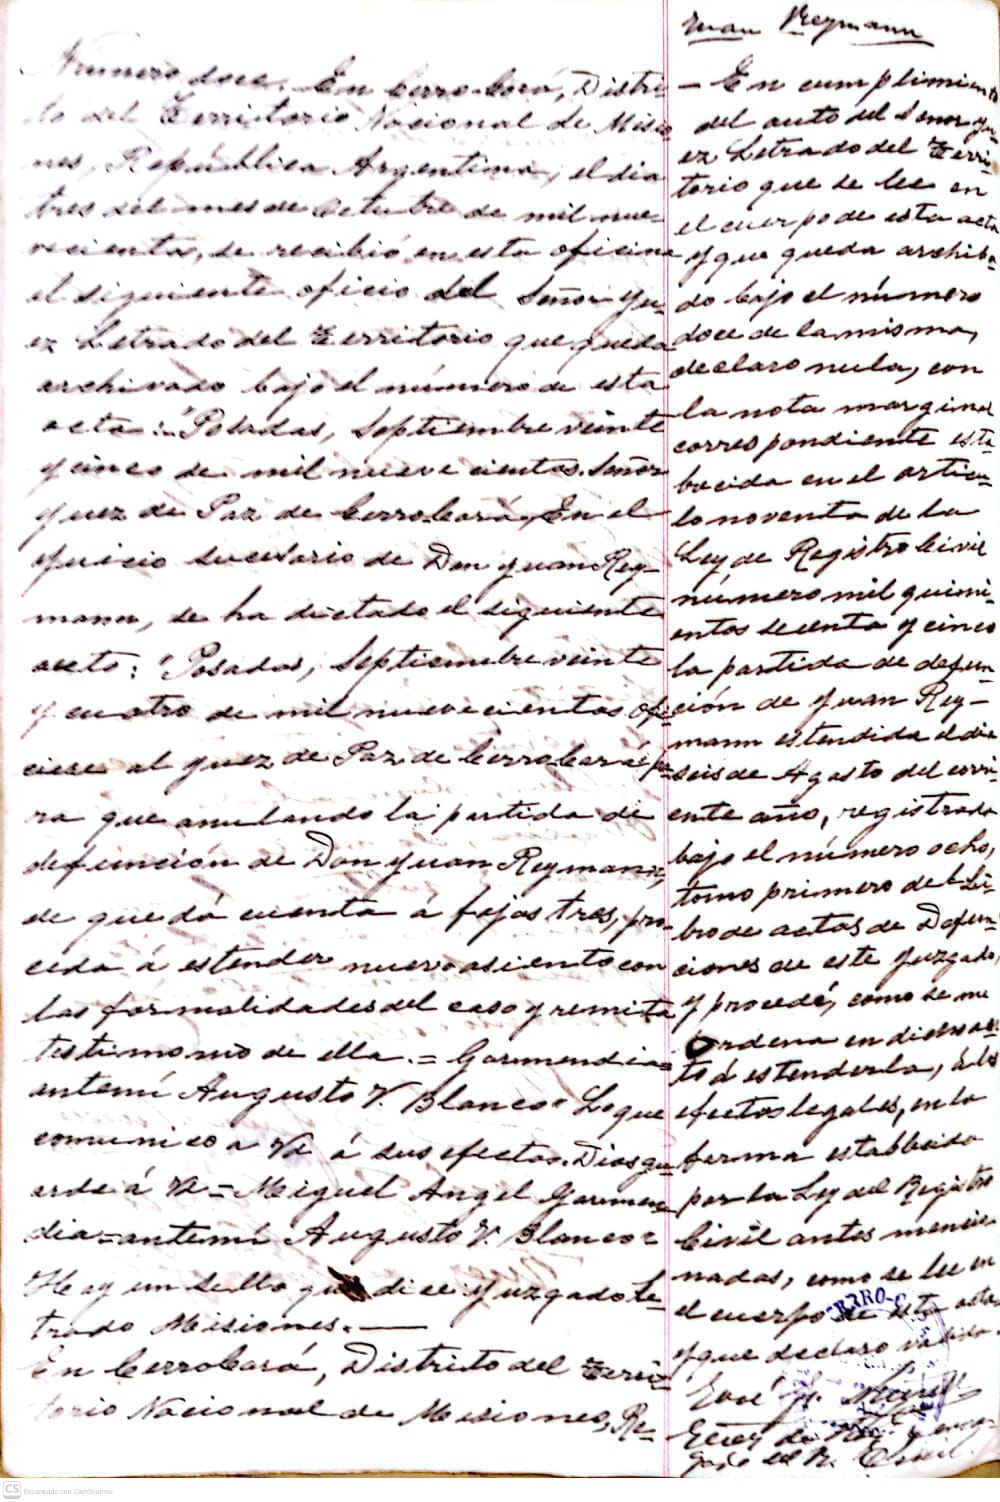 Número doce. En Cerro-Corá, Distri-
to del Territorio Nacional de Misio-
nes, República Argentina, el dia
tres del mes de Octubre de mil nue-
vecientos, se recibió en esta oficina
el siguiente oficio del Señor Yu-
ez Letrado del Territorio que queda
archivado bajo el número de esta
acta:-"Posadas, Septiembre veinte
y cinco de mil nueve cientos. Señor
Yuez de Paz de Cerro-Corá, En el
yuicio sucesorio de Don Yuan Rey-
mann, se ha dictado el siguiente
auto: "Posadas, Septiembre veinte
y cuatro de mil nueve cientos ofi-
ciese al yuez de Paz de Cerro Corá pa-
ra que anulando la partida de
defunción de Don Yuan Reymann,
de que dá cuenta á fojas tres, pro-
ceda á estender nuevo asiento con
las formalidades del caso y remita
testimonio de ella.= Garmendia=
antemí Augusto V. Blanco" Lo que
comunico a Vd á sus efectos. Dios gu-
arde á Vd=Miguel Angel Garmen-
dia=antemí Augusto V. Blanco=
Hay un sello que dice Yuzgado Le-
trado Misiones.
En Cerro Corá, Distrito del Terri-
torio Nacional de Misiones, Re-
Yuan Reymann
- En cumplimiento
del auto del Senor yu-
ez Letrado del Terri-
torio que se lee en
el cuerpo de esta acta
y que queda archiba-
do bajo el número
doce de la misma,
declaro nula, con
la nota marginal
correspondiente esta-
becida en el artícu-
lo noventa de la
Ley de Registro Civil
número mil quini-
entos secenta y cinco
la partida de defun-
ción de Yuan Rey-
mann estendida el dia
seis de Agosto del corri-
ente año, registrada
bajo el número ocho,
tomo primero del Li-
bro de actas de Defun-
ciones de este Yuzgado,
y procedé, como se me
Ordena en dicho au-
to á estenderla, á los
efectos legales, en la
forma estabbecida
por la Ley del Registro
Civil antes mencio-
nadas, como se lee en
el cuerpo de esta acta
y que declaro valida.
José
Yuez de Paz y encar-
gado del R. Civil.
CERRO-C
CS Escaneado con CamScanner